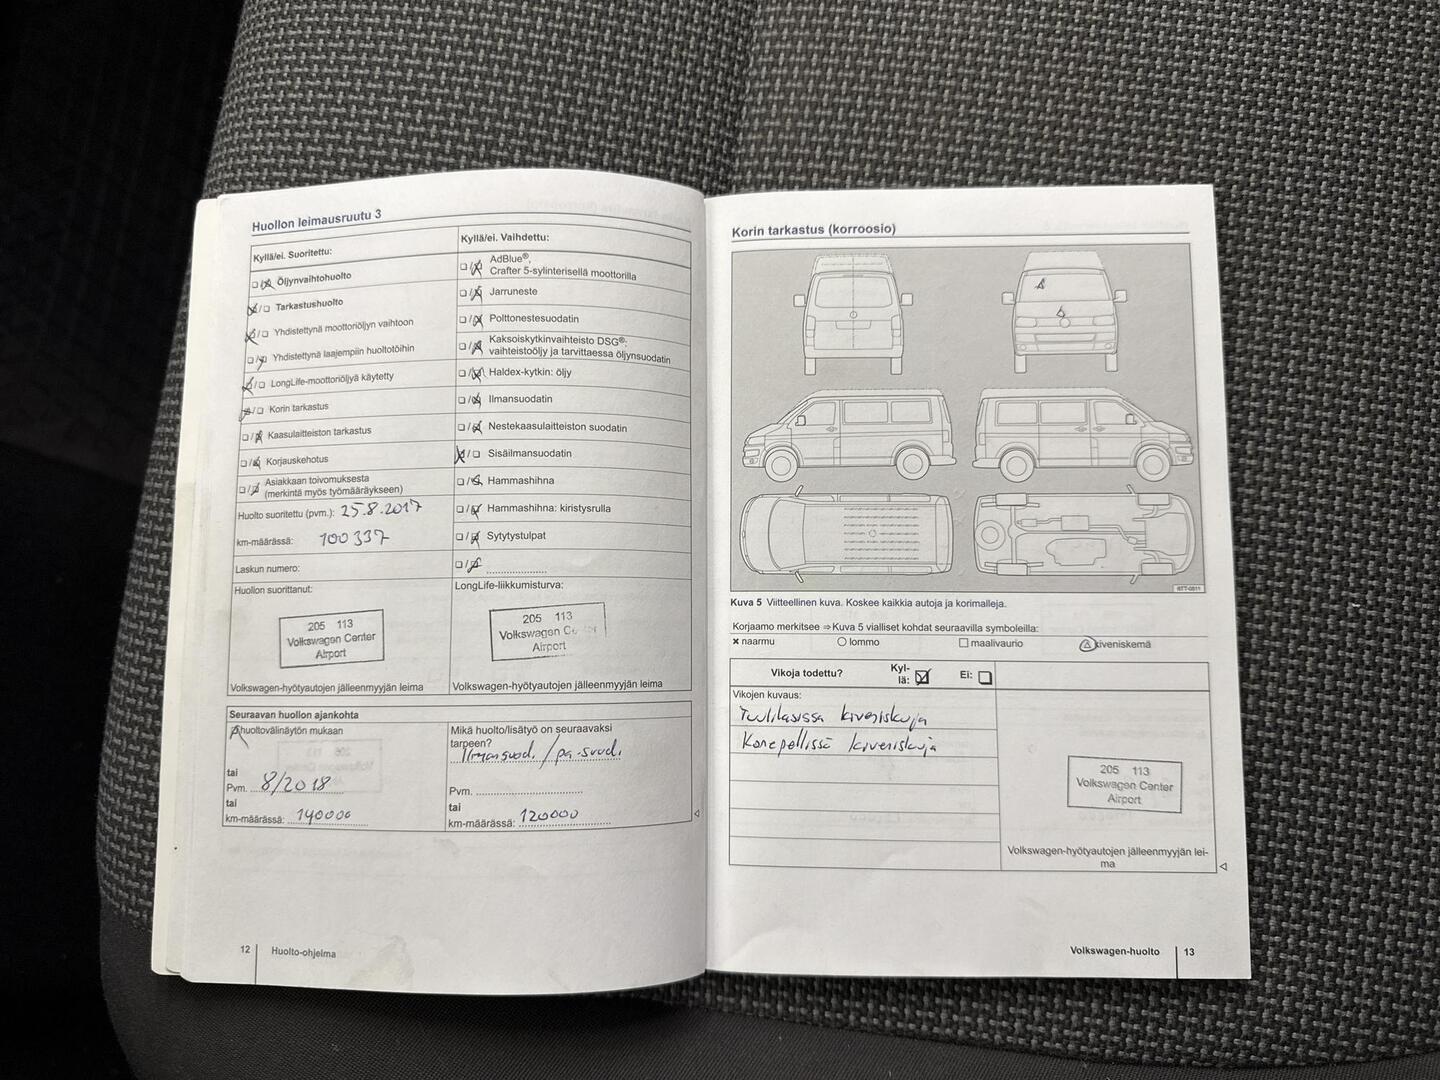 Huollon leimausruutu 3
Kyllä/ei. Suoritettu:
Öljynvaihtohuolto
Tarkastushuolto
Yhdistettynä moottoriöljyn vaihtoon
Yhdistettynä laajempiin huoltotöihin
LongLife-moottoriöljyä käytetty
Korin tarkastus
Kaasulaitteiston tarkastus
Korjauskehotus
Asiakkaan toivomuksesta
(merkintä myös työmääräykseen)
Huolto suoritettu (pvm.): 25.8.2017
km-määrässä: 100337
Laskun numero:
Huollon suorittanut:
205 113
Volkswagen Center
Airport
Volkswagen-hyötyautojen jälleenmyyjän leima
Kyllä/ei. Vaihdettu:
AdBlue®,
Crafter 5-sylinterisellä moottorilla
Jarruneste
Polttonestesuodatin
Kaksoiskytkinvaihteisto DSG®:
vaihteistoöljy ja tarvittaessa öljynsuodatin
Haldex-kytkin: öljy
Ilmansuodatin
Nestekaasulaitteiston suodatin
Sisäilmansuodatin
Hammashihna
Hammashihna: kiristysrulla
Sytytystulpat
LongLife-liikkumisturva:
205 113
Volkswagen Center
Airport
Volkswagen-hyötyautojen jälleenmyyjän leima
Seuraavan huollon ajankohta
huoltovälinäytön mukaan
tai
Pvm. 8/2018
tai
km-määrässä: 140000
Mikä huolto/lisätyö on seuraavaksi
tarpeen?
Ilmansuod. / pa-suod.
Pvm.
tai
km-määrässä: 120000
12 Huolto-ohjelma
Korin tarkastus (korroosio)
BTT-0811
Kuva 5 Viitteellinen kuva. Koskee kaikkia autoja ja korimalleja.
Korjaamo merkitsee ⇒ Kuva 5 vialliset kohdat seuraavilla symboleilla:
× naarmu ○ lommo □ maalivaurio △ kiveniskemä
Vikoja todettu? Kyl-
lä: Ei:
Vikojen kuvaus:
Tuulilasissa kiveniskuja
Konepellissä kiveniskuja
205 113
Volkswagen Center
Airport
Volkswagen-hyötyautojen jälleenmyyjän lei-
ma
Volkswagen-huolto 13